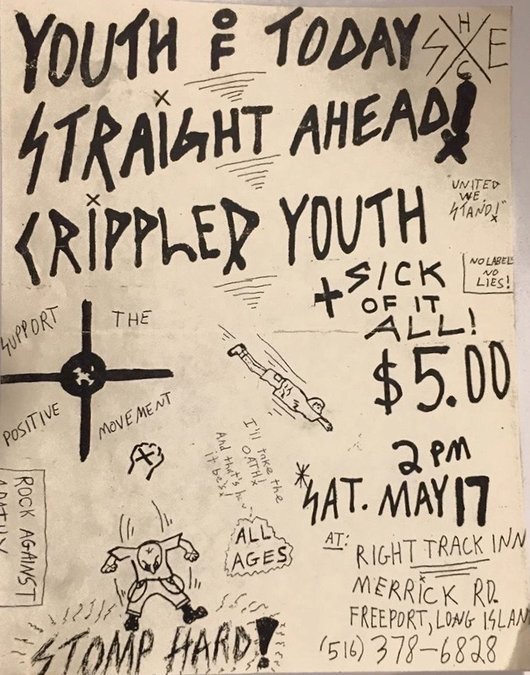 YOUTH OF TODAY
S H E
C
STRAIGHT AHEAD!
X
CRIPPLED YOUTH
"UNITED
WE
STAND!"
+ SICK
OF IT
ALL!
NO LABELS
NO
LIES!
$5.00
SUPPORT THE
POSITIVE MOVEMENT
X
I'll take the
OATH!
And that's
it be's!
2 PM
*SAT. MAY 17
ALL
AGES
AT: RIGHT TRACK INN
MERRICK RD.
FREEPORT, LONG ISLAN
(516) 378-6828
ROCK AGAINST
STOMP HARD!